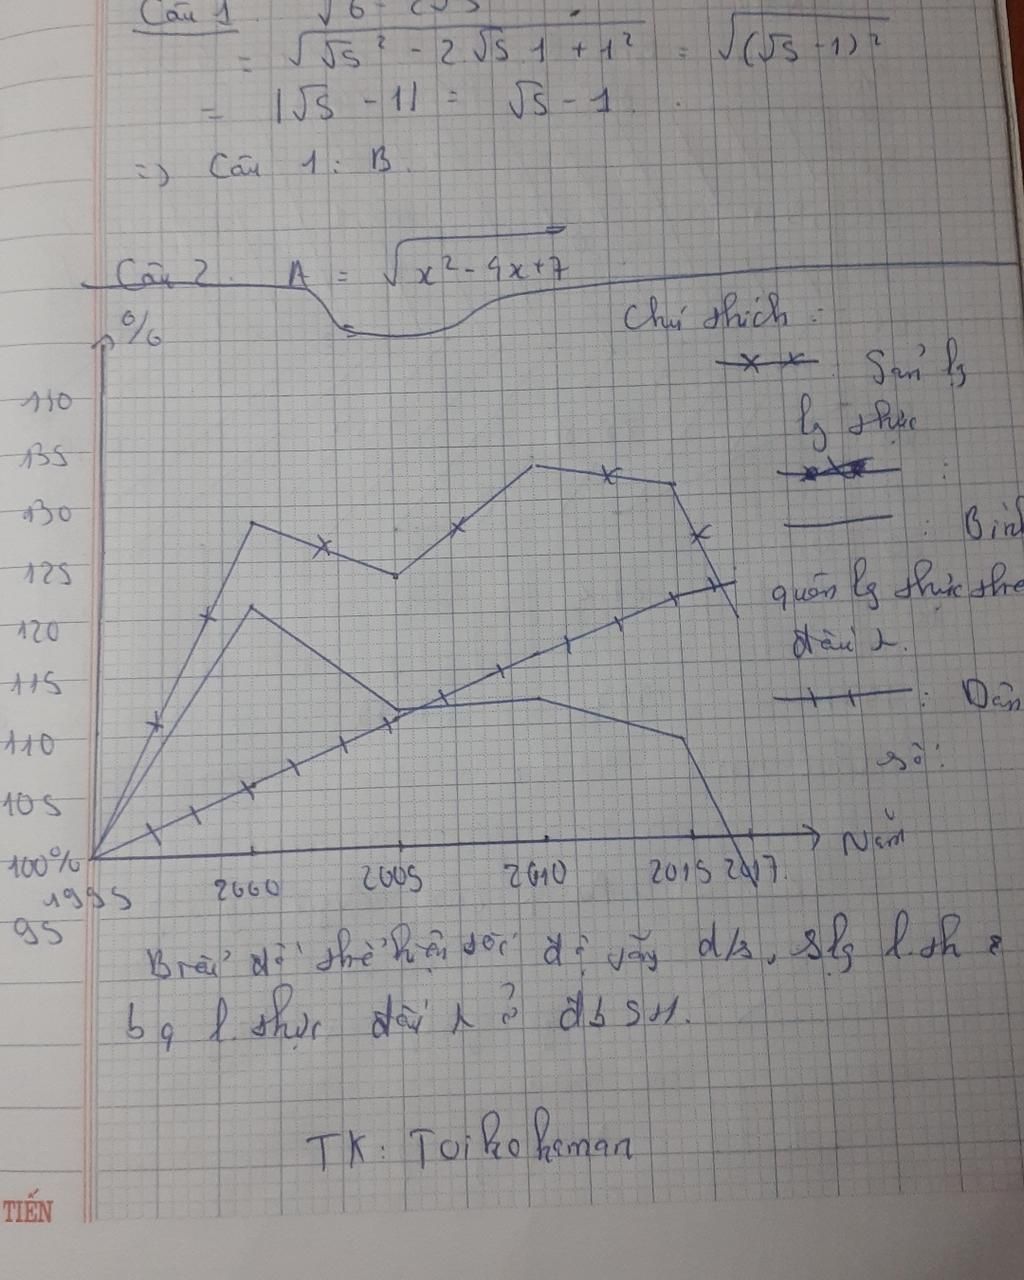 Câu 1 √6 - 2√5
= √√5² - 2√5 1 + 1² = √(√5 - 1)²
= |√5 - 1| = √5 - 1.
=> Câu 1: B.
Câu 2. A = √x² - 4x+7
%
Chú thích:
Sản lg
lg thực
:
: Bình
quân lg thực theo
đầu λ.
: Dân
số:
140
135
130
125
120
115
110
105
100%
95
1995 2000 2005 2010 2015 2017. Năm
Biểu đồ thể hiện tốc độ tăng d/s, slg l.th &
bq l.thực đầu λ ở đb SH.
TK: Toikoheman
TIẾN